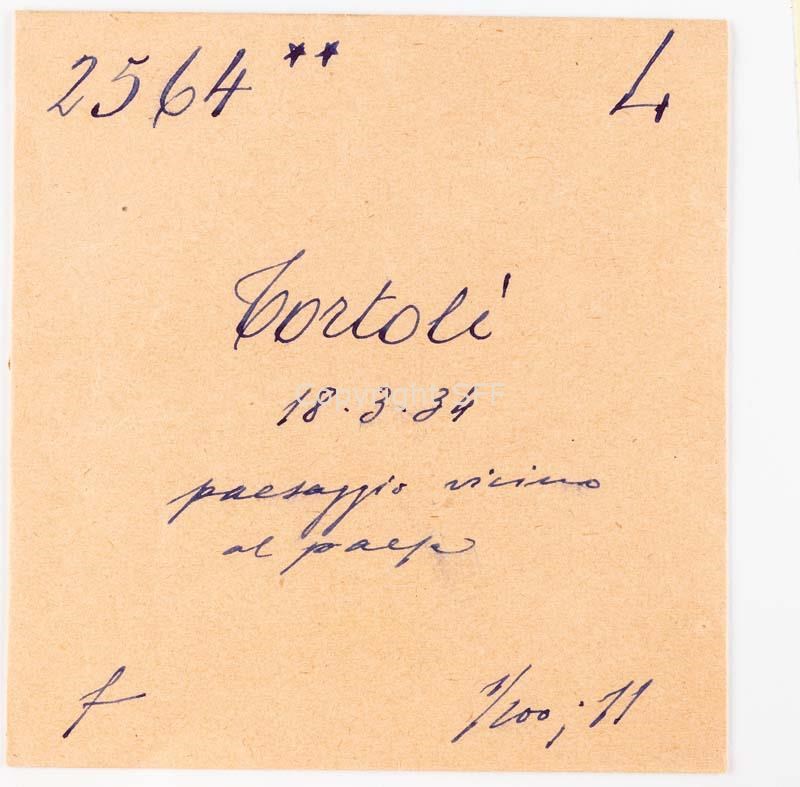 2564** L
Tortolì
Copyright SFF
18.3.34
paesaggio vicino
al paese
f 1/200; 11